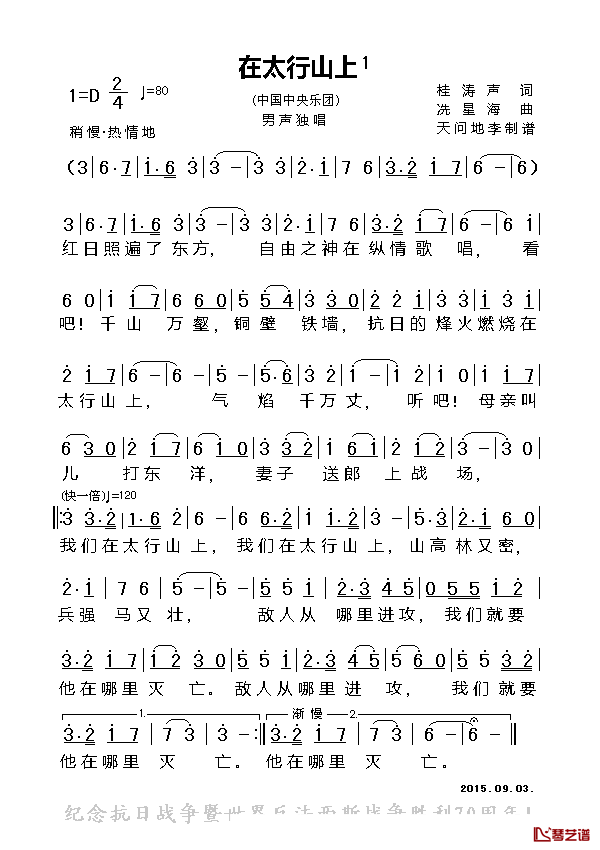 在太行山上1
1=D 2/4 ♩=80
(中国中央乐团)
男声独唱
稍慢·热情地
桂涛声 词
冼星海 曲
天问地李制谱
(3|6·7|i·6 3|3 -|3 3|2·i|7 6|3·2 i 7|6 -|6 -)
3|6·7|i·6 3|3 -|3 3|2·i|7 6|3·2 i 7|6 -|6 i|
红日照遍了东方， 自由之神在纵情歌 唱， 看
6 0|i i 7|6 6 0|5 5 4|3 3 0|2 2 i|3 3 2|
吧！千山 万壑，铜壁 铁墙，抗日的 烽火燃烧在
2 i 7|6 -|6 -|5 -|5·6|3 i 2|i -|i 2|i 0|i i i|
太行山上， 气 焰 千万丈， 听吧！母亲叫
6 3 0|2 i 7|6 i 0|3 3 2|i 6 i|2 i 2|3 -|3 0|
儿 打东 洋， 妻子 送郎 上战 场，
(快一倍)♩=120
3 3·2|i·6 2|2 -|6 -|6 6·2|i·2 3|3 -|5·3|2·i 6 0|
我们在太行山上，我们在太行山上，山高林又密，
2·i|7 6|5 -|5 -|5 5 i|2 3·2 i i|0 5 5 5 i|
兵强 马又 壮， 敌人从 哪里进攻，我们就要
3·2 i 7|i 2 3 0|5 5 i|2·3 4 5|5 0|5 5 3 2|
他在哪里 灭 亡。敌人从哪里 进 攻， 我们就要
1.
渐慢
2.
3·2 i 7|7 3|3 -:|3·2 i 7|7 3|6 -|6 -|
他在哪里 灭 亡。 他在哪里 灭 亡。
2015.09.03.
纪念抗日战争暨世界反法西斯战争胜利70周年！
琴艺谱